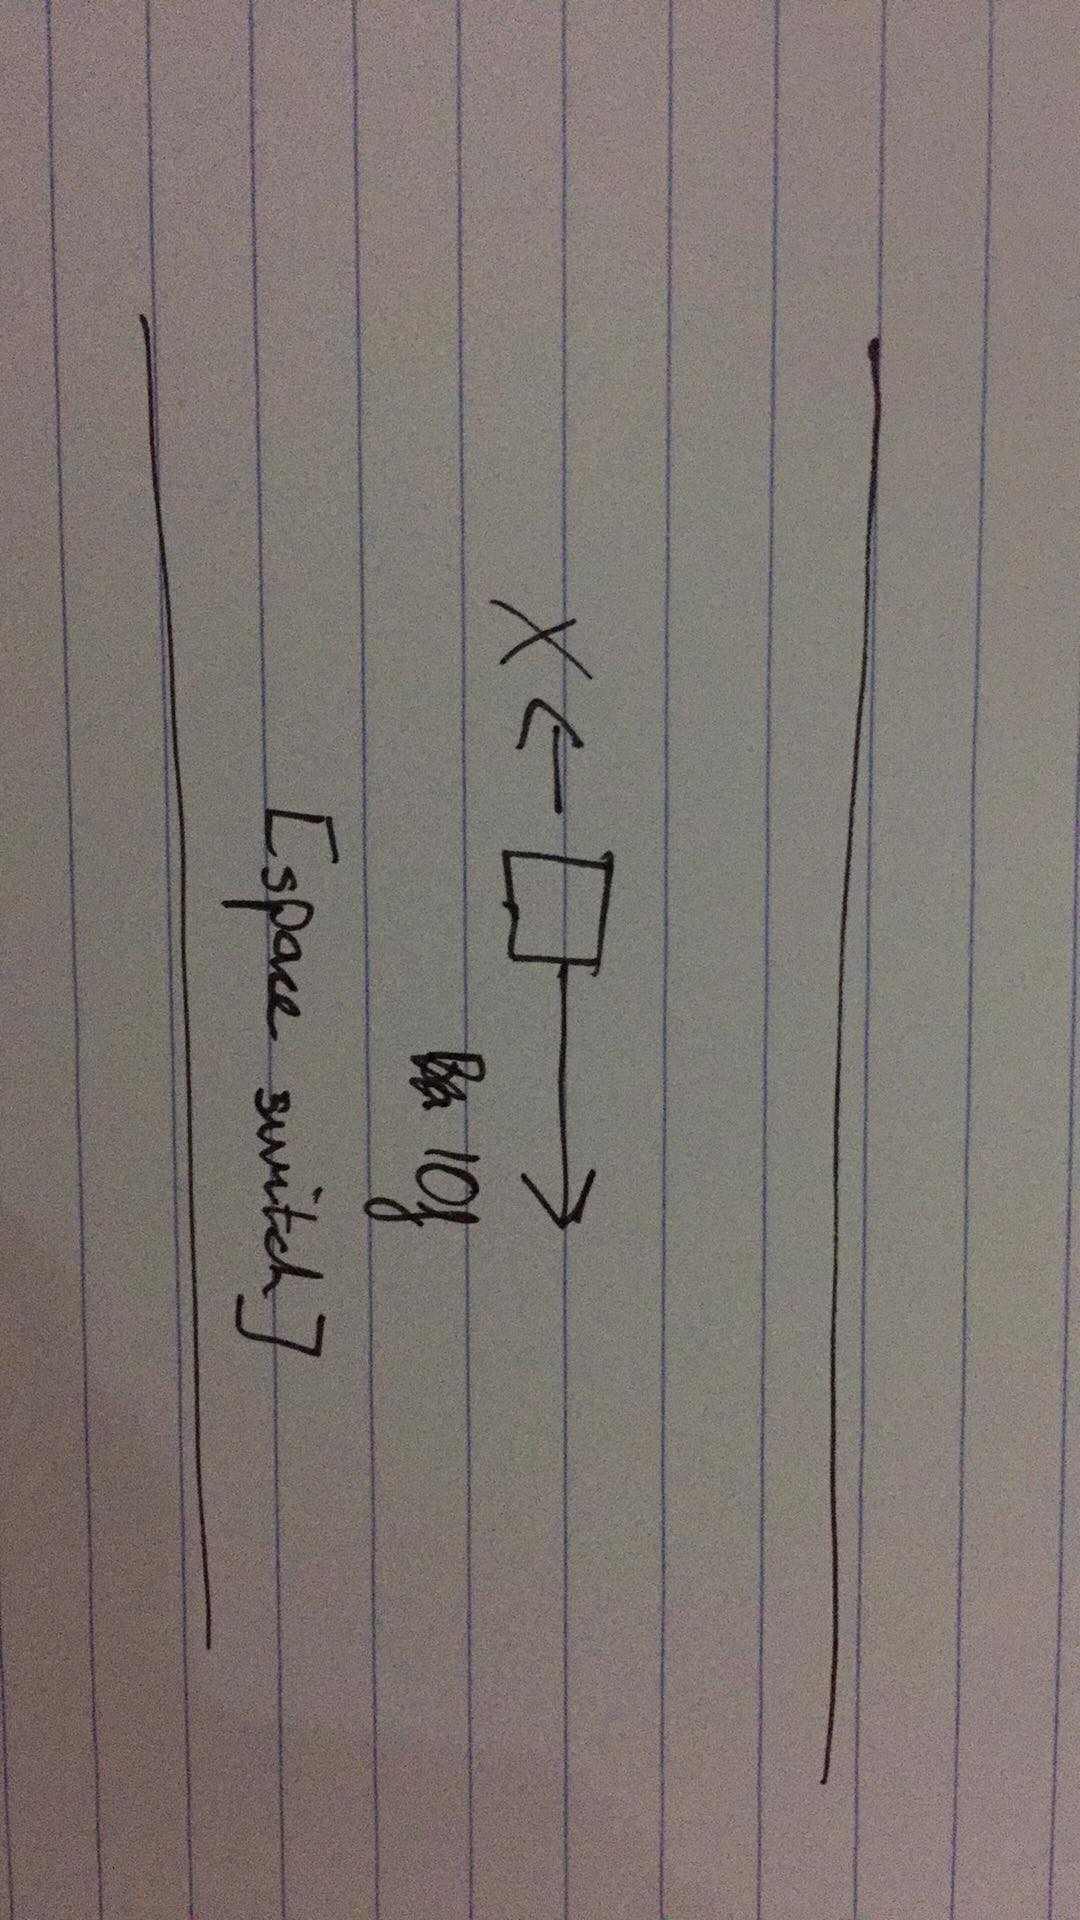 X
10g
[space switch]